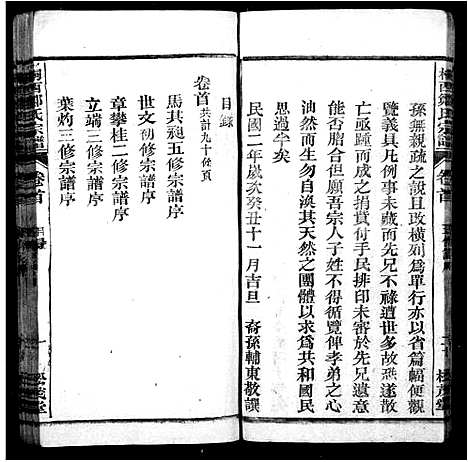 孫無親疏之說且改橫列爲單行亦以省篇幅便觀
覽義具凡例事未蕆而先兄不祿遭世多故燕遊散
亡亟踵而成之捐貲付手民排印未審於先兄遺意
能否脗合但願吾宗人子姓不得循覽俾孝弟之心
油然而生勿自渙其天然之團體以求爲共和國民
思過半矣
民國二年歲次癸丑十一月吉旦 裔孫輔東敬譔
目錄
卷首共計九十餘頁
馬其昶五修宗譜序
世文初修宗譜序
章攀桂二修宗譜序
立端三修宗譜序
葉灼三修宗譜序
桐西鄒氏宗譜
卷首
目錄
一